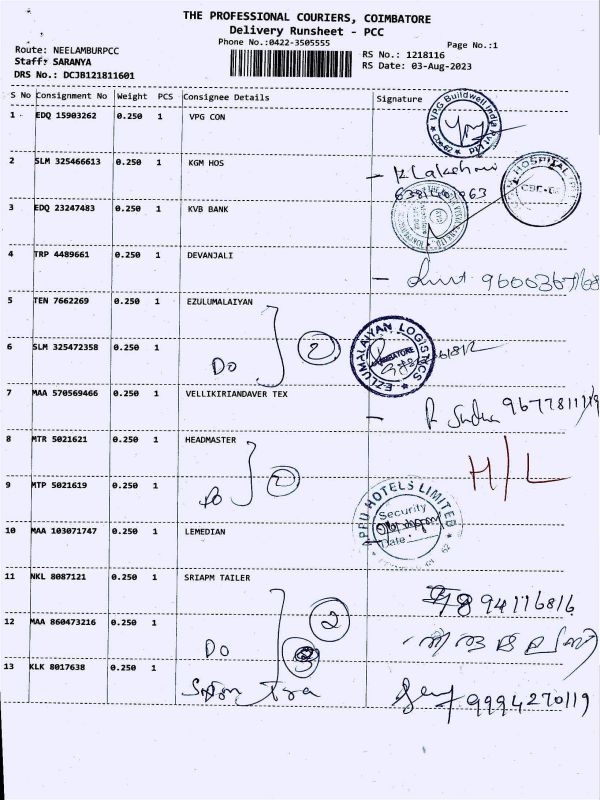 THE PROFESSIONAL COURIERS, COIMBATORE
Delivery Runsheet - PCC
Phone No.:0422-3505555
Page No.:1
Route: NEELAMBURPCC
Staff: SARANYA
DRS No.: DCJB121811601
RS No.: 1218116
RS Date: 03-Aug-2023
S No Consignment No Weight PCS Consignee Details Signature
1 EDQ 15903262 0.250 1 VPG CON
VPG Buildwell India Pvt Ltd
2 SLM 325466613 0.250 1 KGM HOS
HOSPITAL
3 EDQ 23247483 0.250 1 KVB BANK
4 TRP 4489661 0.250 1 DEVANJALI
5 TEN 7662269 0.250 1 EZULUMALAIYAN
EZLUMALAIYAN LOGISTICS
COIMBATORE
6 SLM 325472358 0.250 1 Do 2
7 MAA 570569466 0.250 1 VELLIKIRIANDAVER TEX
9677811119
8 MTR 5021621 0.250 1 HEADMASTER
H/L
9 MTP 5021619 0.250 1 Do 2
APPU HOTELS LIMITED
Security
Date
10 MAA 103071747 0.250 1 LEMEDIAN
11 NKL 8087121 0.250 1 SRIAPM TAILER
94116816
12 MAA 860473216 0.250 1 Do 2
13 KLK 8017638 0.250 1
9994270119